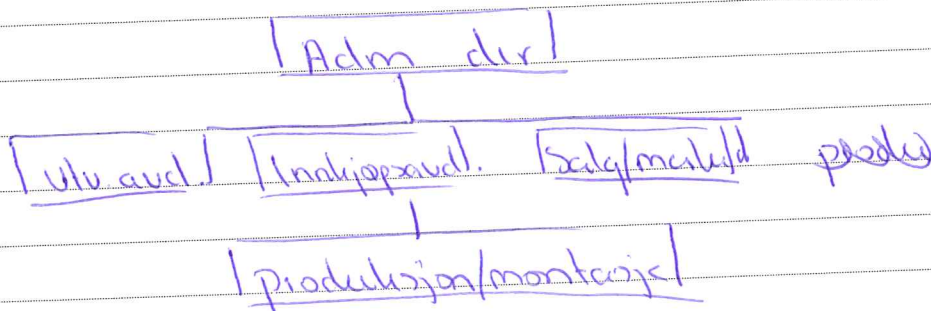 Adm dir
utv. avd. Innkjøpsavd. Salg/marked produ
Produksjon/montasje